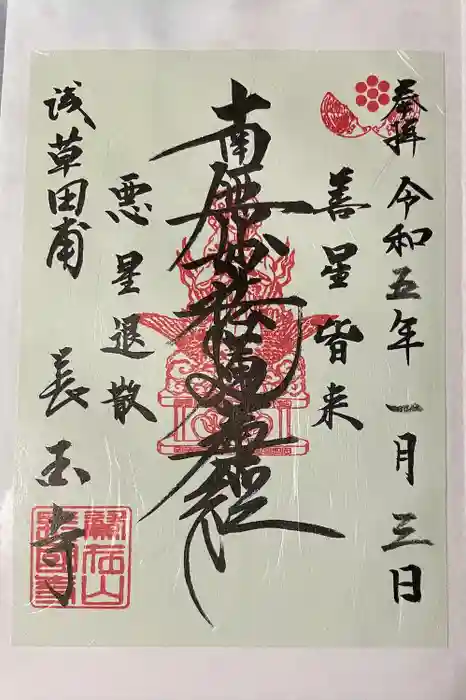 奉拝 令和五年一月三日
善星皆来
南無妙法蓮華経
悪星退散
浅草田甫
長国寺